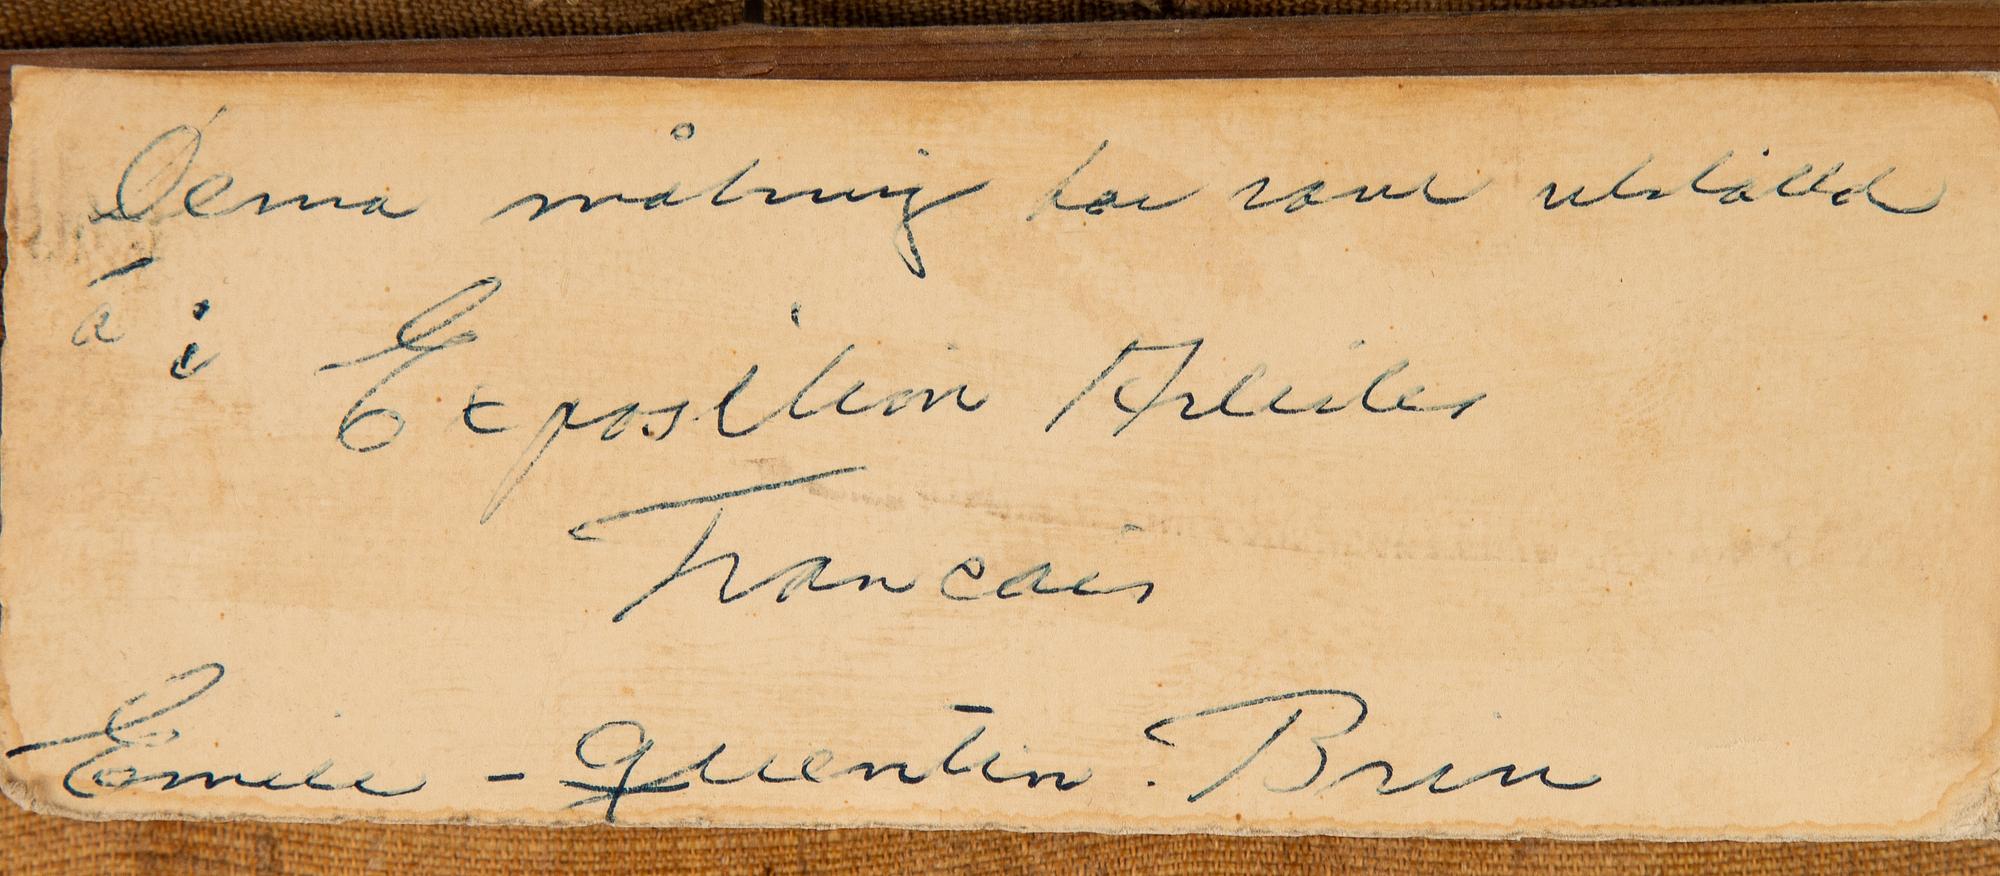 Denna målning har varit utställd
å i Exposition Artistes
Francais
Emile - Quentin - Brin